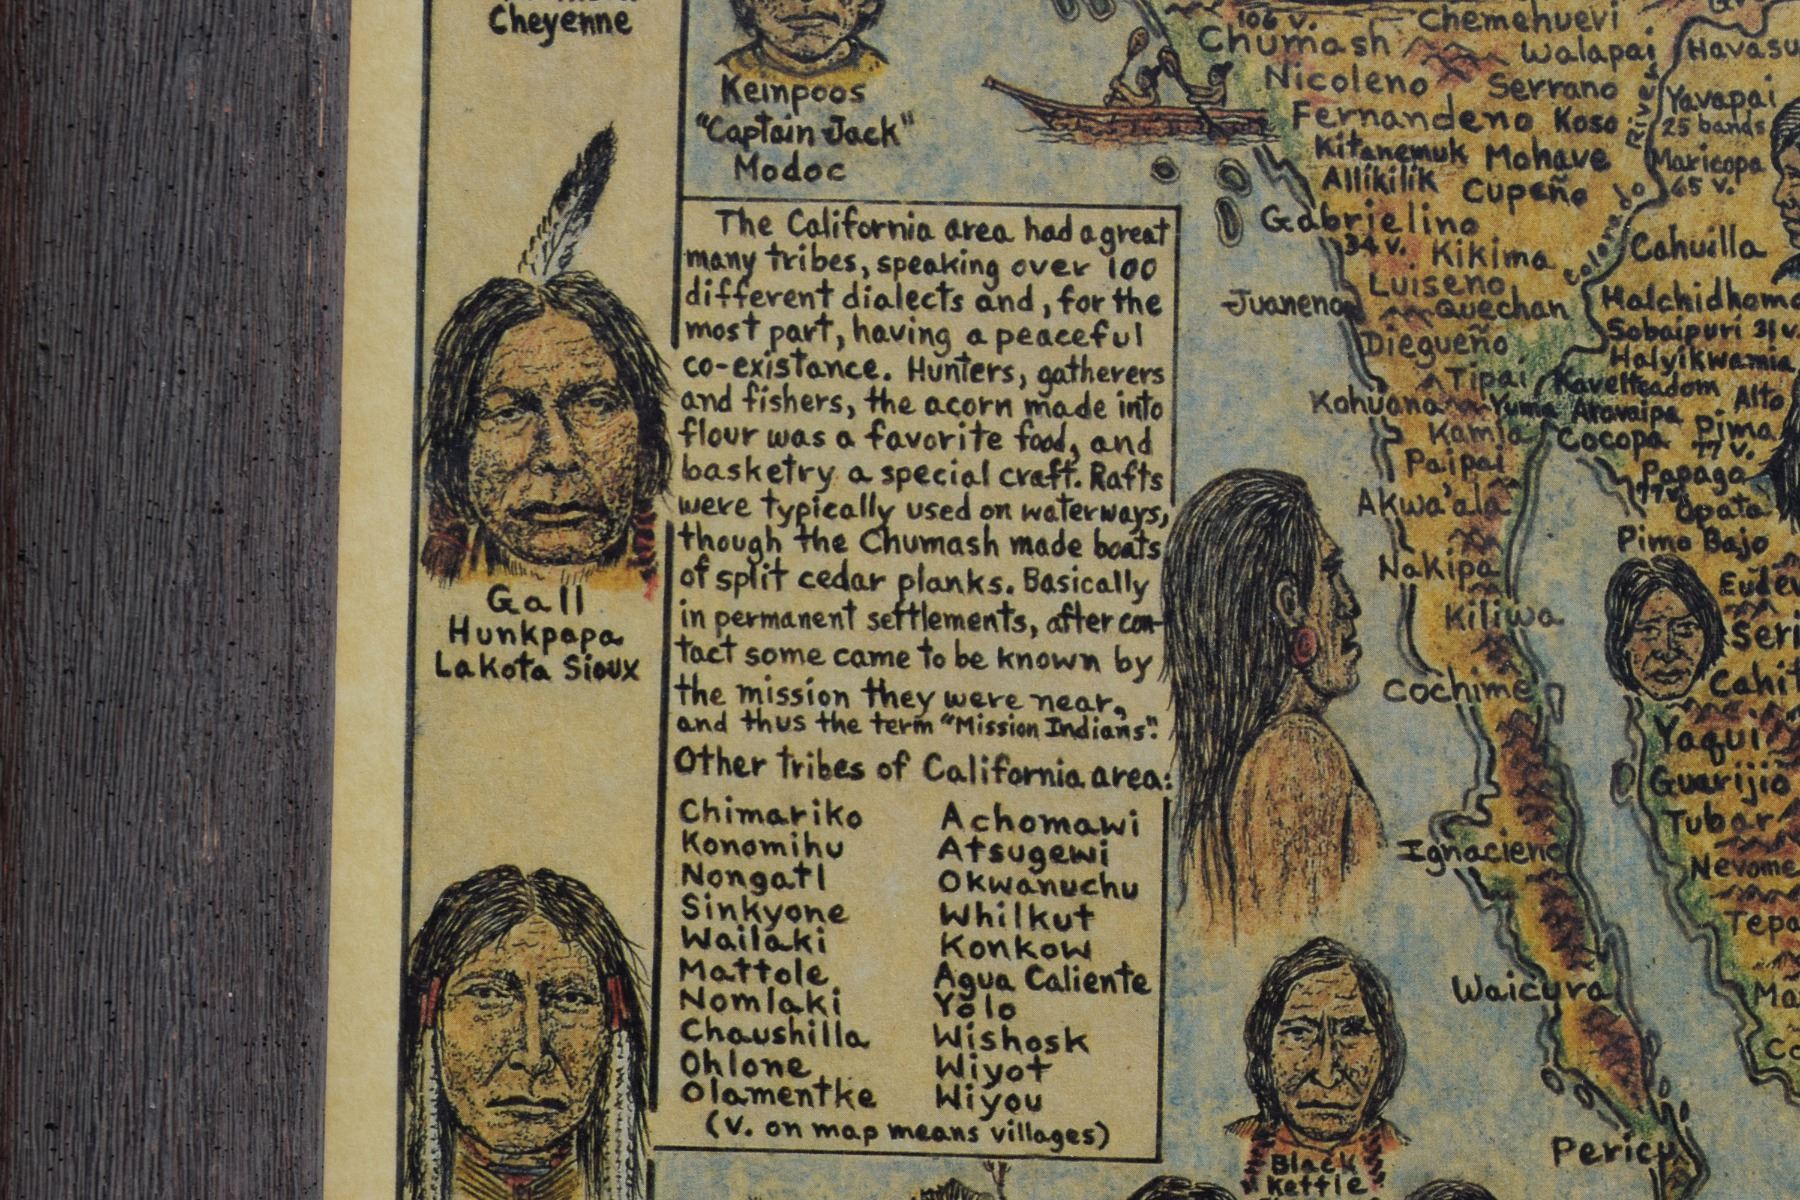 Cheyenne
Gall
Hunkpapa
Lakota Sioux
Keinpoos
"Captain Jack"
Modoc
The California area had a great
many tribes, speaking over 100
different dialects and, for the
most part, having a peaceful
co-existance. Hunters, gatherers
and fishers, the acorn made into
flour was a favorite food, and
basketry a special craft. Rafts
were typically used on waterways,
though the Chumash made boats
of split cedar planks. Basically
in permanent settlements, after con-
tact some came to be known by
the mission they were near,
and thus the term "Mission Indians".
Other tribes of California area:
Chimariko
Konomihu
Nongatl
Sinkyone
Wailaki
Mattole
Nomlaki
Chaushilla
Ohlone
Olamentke
Achomawi
Atsugewi
Okwanuchu
Whilkut
Konkow
Agua Caliente
Yolo
Wishosk
Wiyot
Wiyou
(v. on map means villages)
106 v.
Chemehuevi
Chumash
Walapai
Havasu
Nicoleno
Serrano
Yavapai
25 bands
Fernandeno
Koso
River
Kitanemuk
Mohave
Maricopa
65 v.
Allikilik
Cupeño
Colorado
Gabrielino
34 v.
Kikima
Cahuilla
Luiseno
Juaneno
Quechan
Halchidhoma
Sobaipuri 31 v.
Diegueño
Halyikwamia
Tipai
Kohuana
Yuma
Aravaipa
Alto
Pima
77 v.
Kamia
Cocopa
Paipai
Papago
Akwa'ala
Opata
Pimo Bajo
Nakipa
Eudev
Kiliwa
Seri
Cochime
Cahit
Yaqui
Guarijio
Tubar
Ignacieno
Nevome
Tepa
Waicura
Ma
Co
Pericu
Black
Kettle